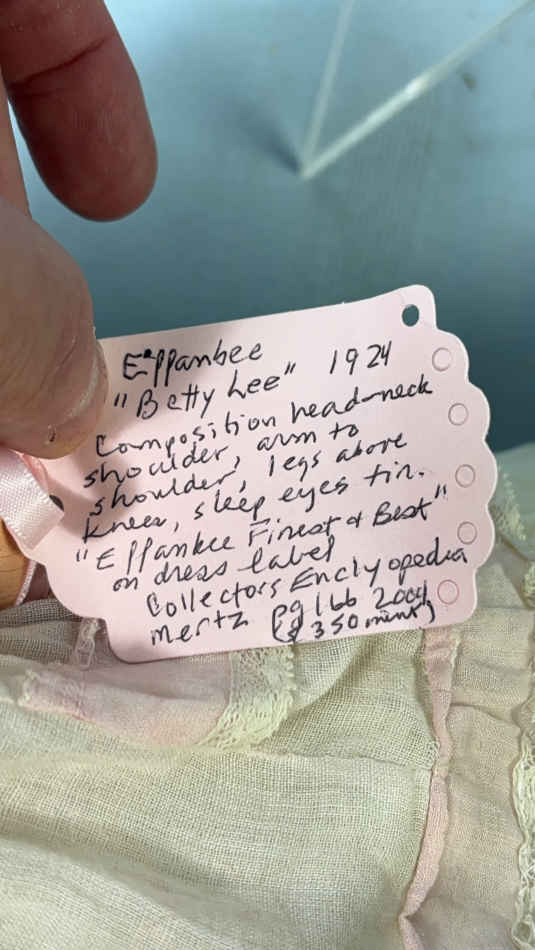 Effanbee
"Betty Lee" 1924
Composition head-neck
shoulder, arm to
shoulder, legs above
knees, sleep eyes tin.
"Effanbee Finest & Best"
on dress label
Collectors Enclyopedia
mertz Pg 166 2004
$350 mint)